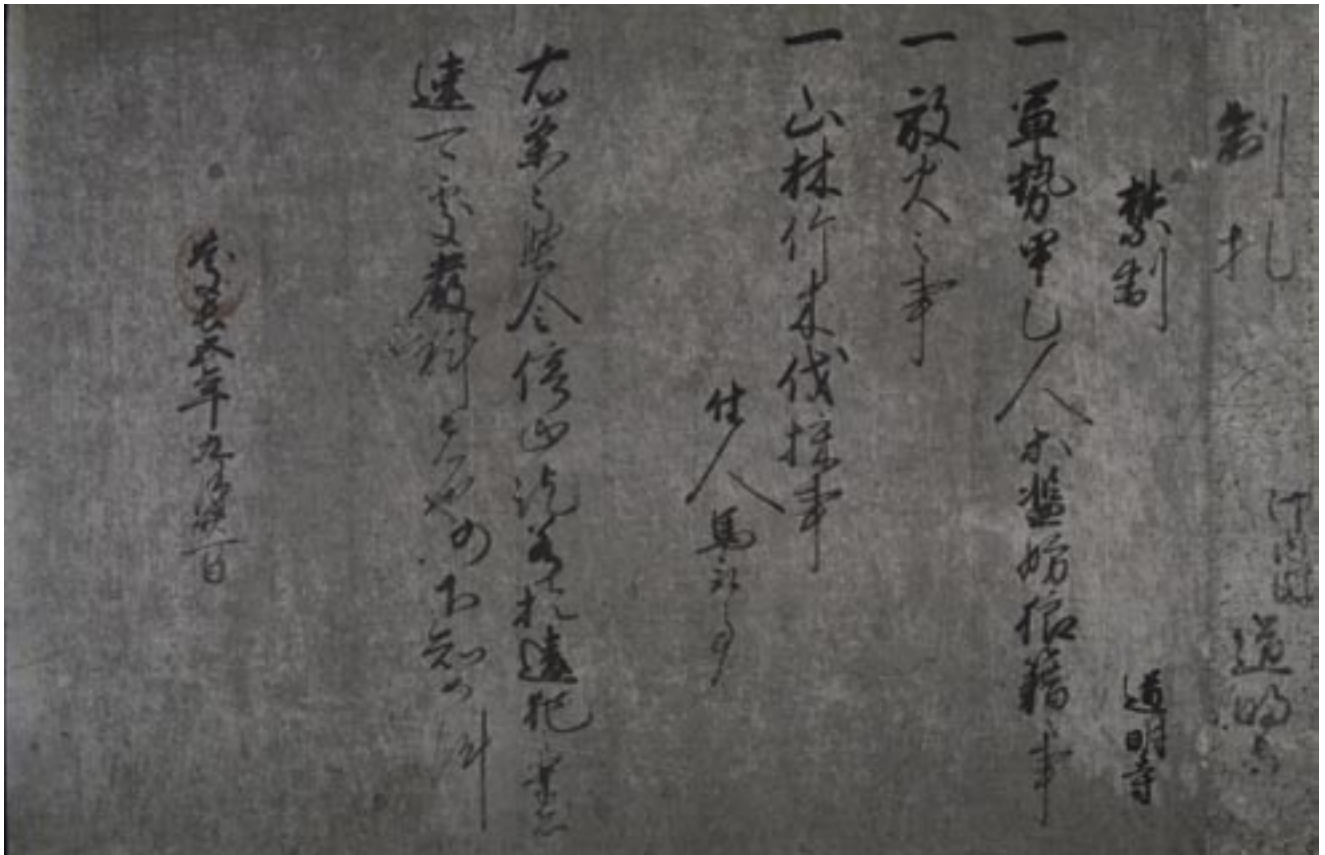 制札
河内国 道明寺
禁制 道明寺
一軍勢甲乙人等濫妨狼藉事
一放火之事
一山林竹木伐採事
住人
右条々堅令停止訖若於違犯之輩者
速可処厳科者也仍下知如件
慶長五年九月